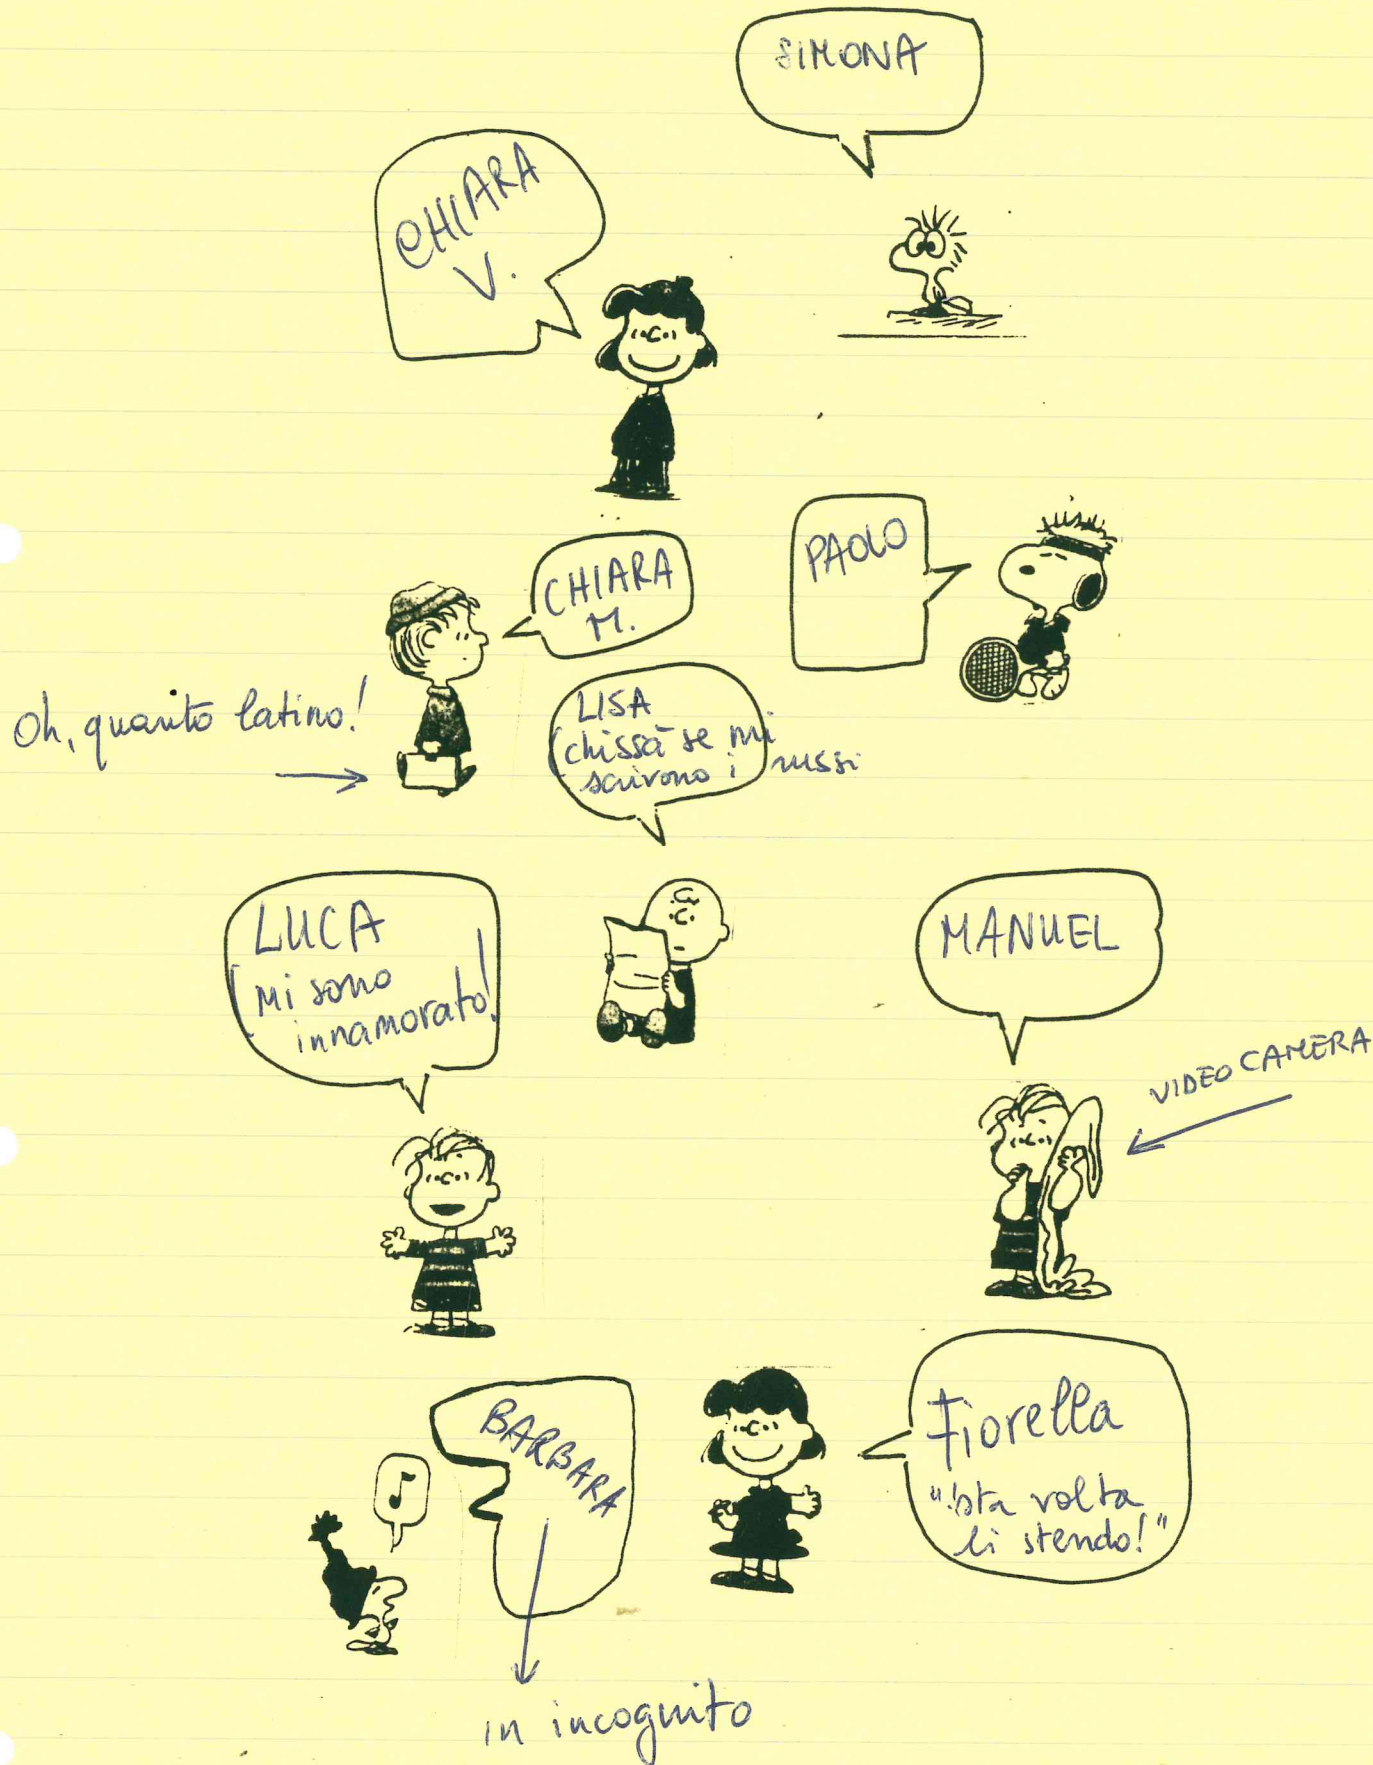 SIMONA
CHIARA
V.
PAOLO
CHIARA
M.
Oh, quanto latino!
LISA
(chissà se mi
scrivono i russi
LUCA
(Mi sono
innamorato!
MANUEL
VIDEO CAMERA
BARBARA
Fiorella
"'sta volta
li stendo!"
in incognito